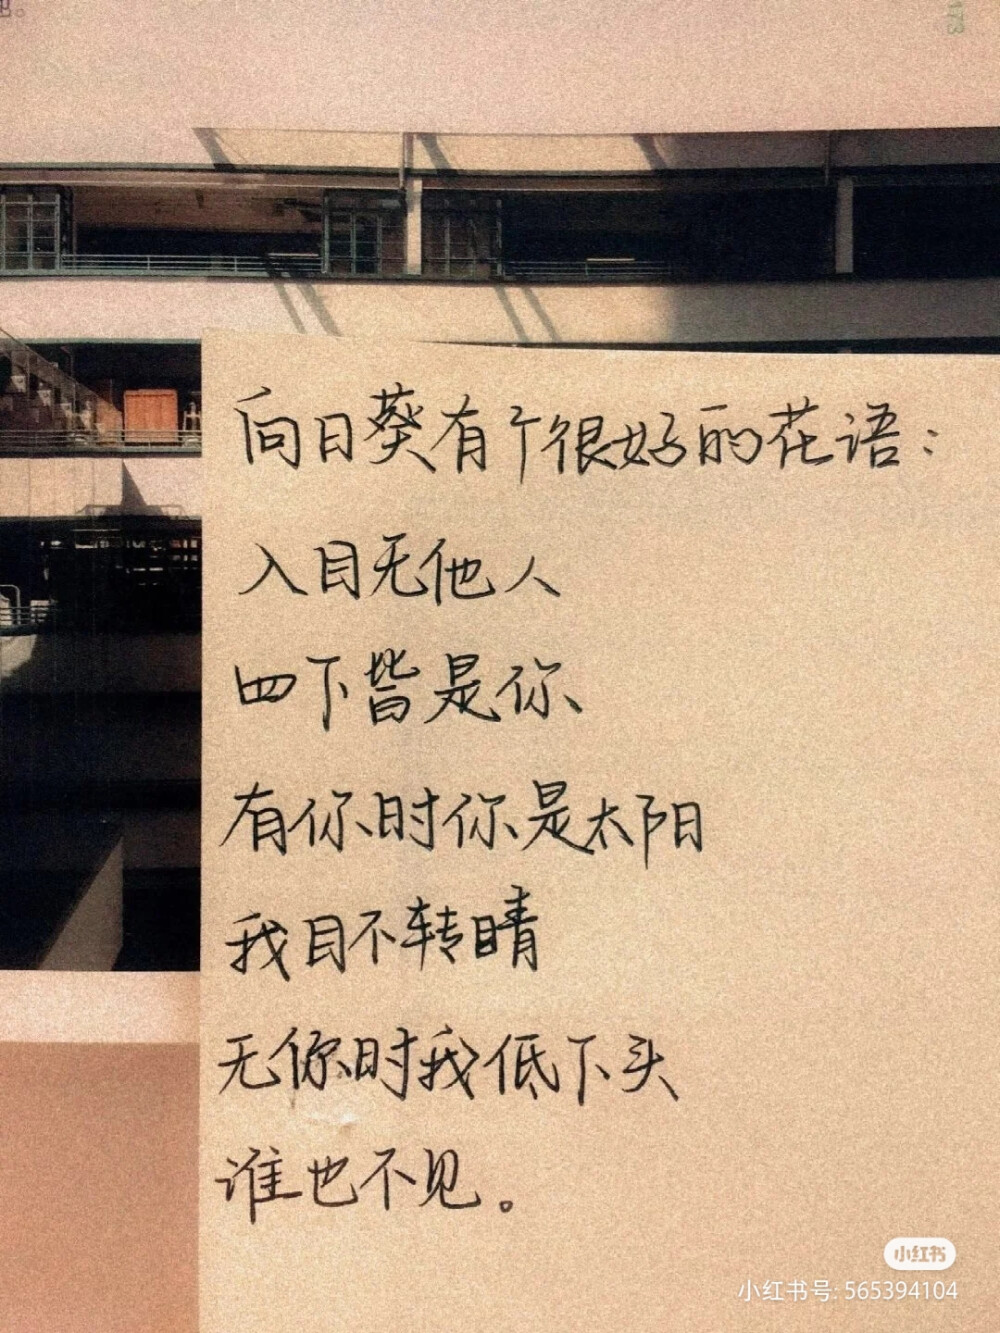 173
向日葵有个很好的花语：
入目无他人
四下皆是你
有你时你是太阳
我目不转睛
无你时我低下头
谁也不见。
小红书
小红书号: 565394104